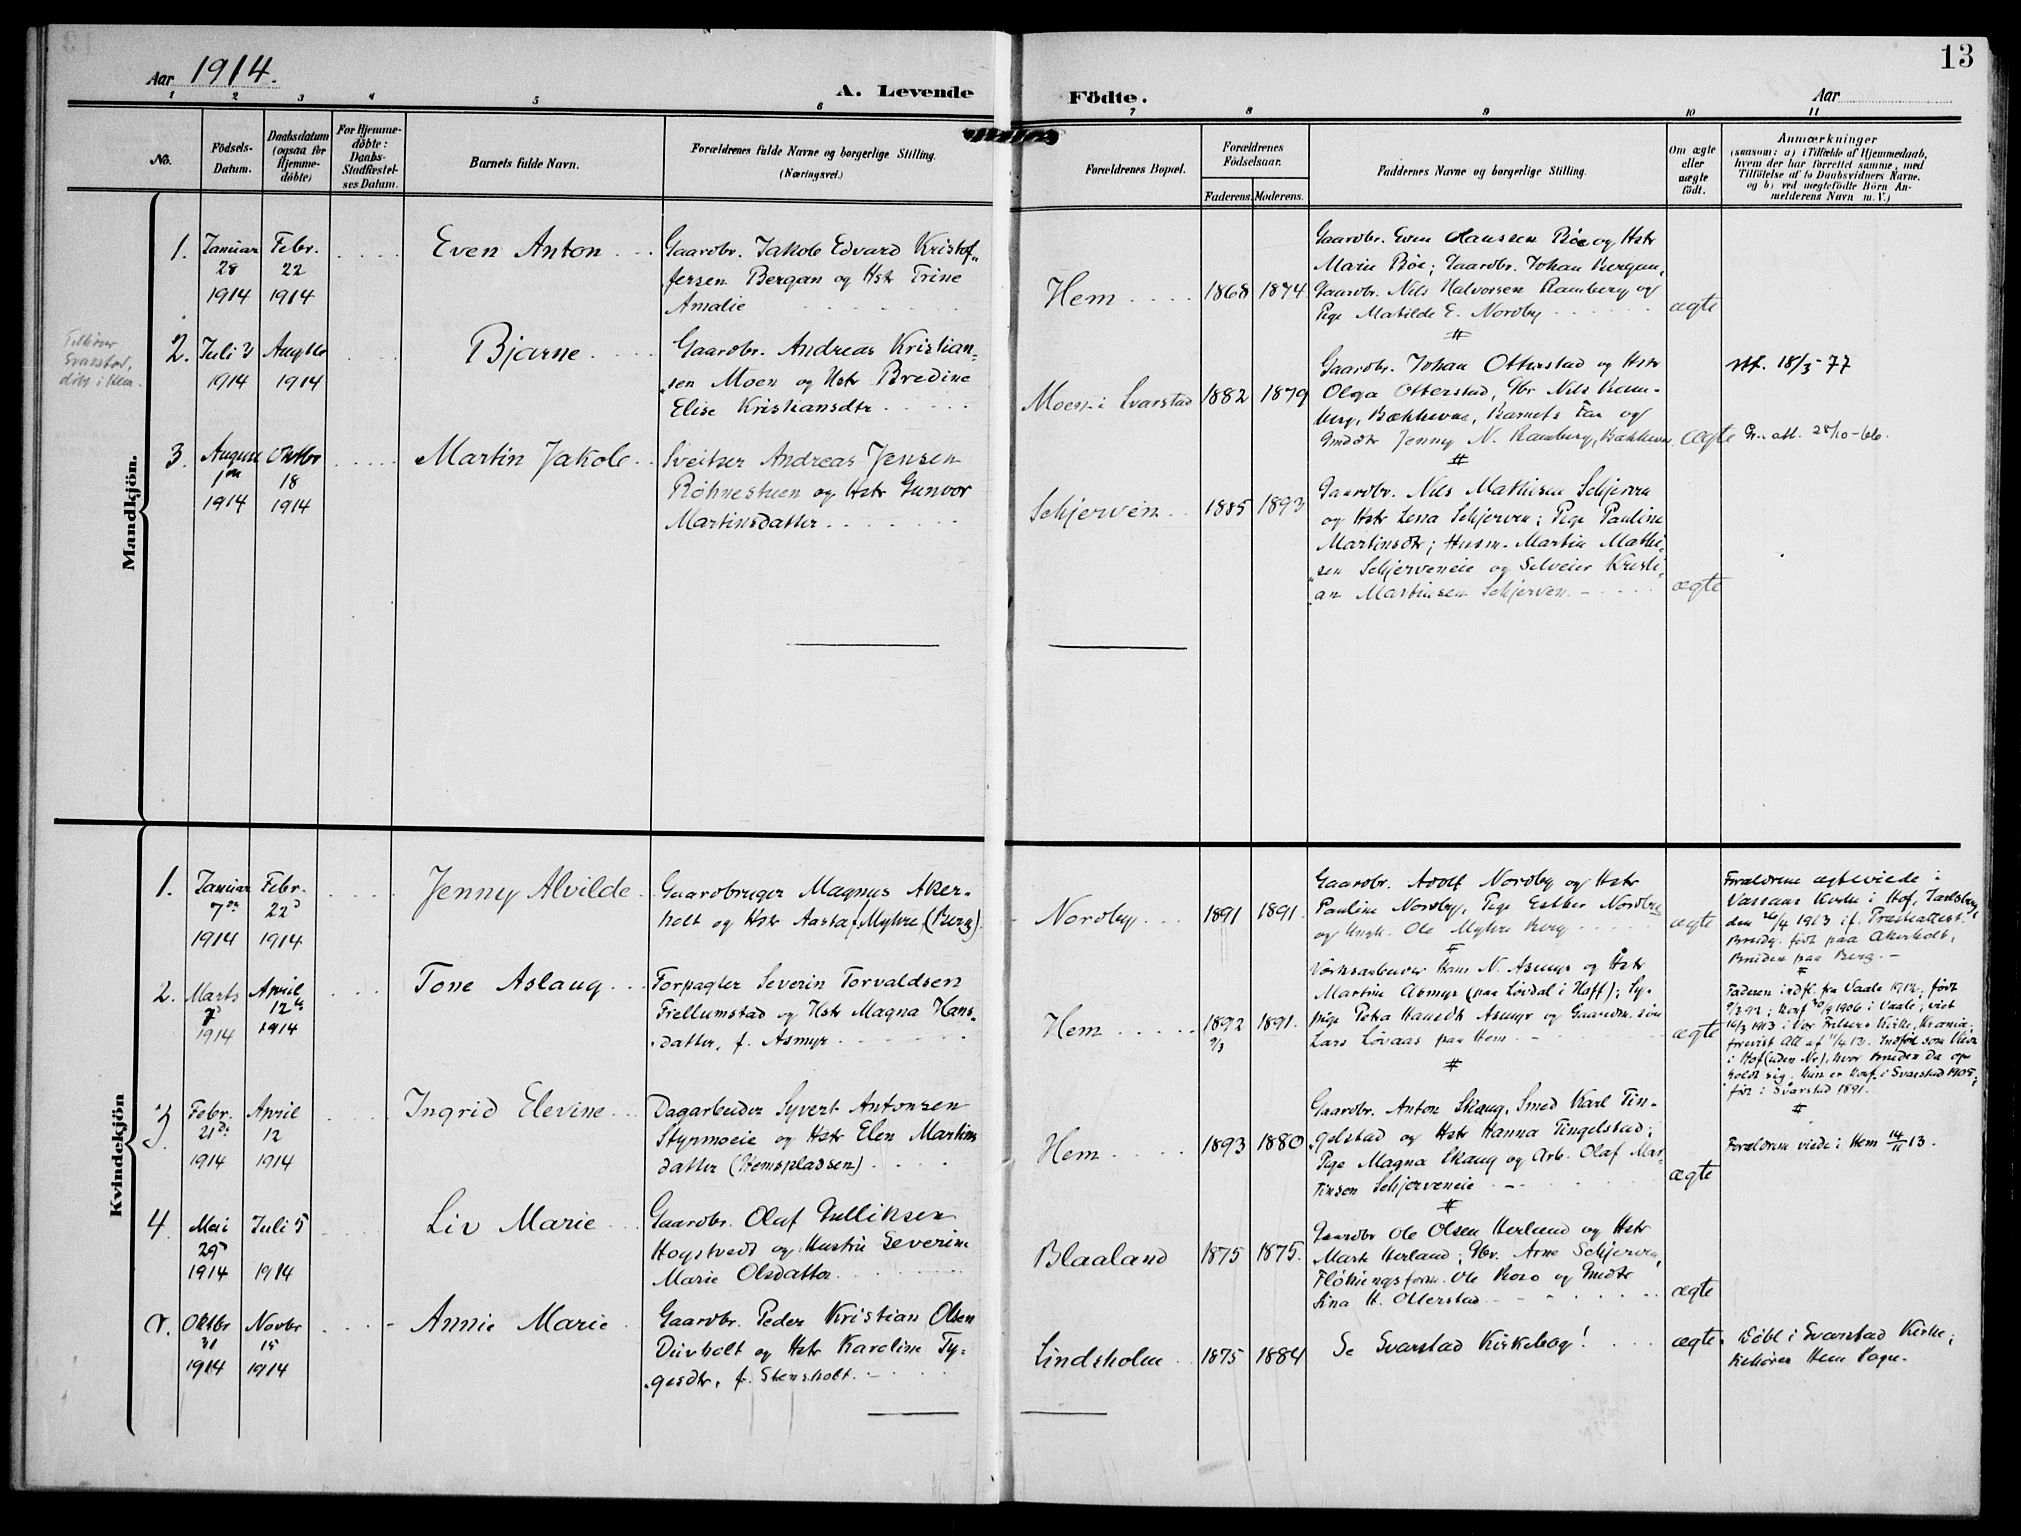 13
Aar 1914.
A. Levende Födte.
Aar
1 2 3 4 5 6 7 8 9 10 11
No.
Födsels-
Datum.
Daabsdatum
(ogsaa for
Hjemme-
döbte)
For Hjemme-
döbte:
Daabs-
Stadfæstel-
ses Datum.
Barnets fulde Navn.
Forældrenes fulde Navne og borgerlige Stilling.
(Næringsvei.)
Forældrenes Bopæl.
Forældrenes
Födselsaar.
Faderens. Moderens.
Faddernes Navne og borgerlige Stilling.
Om ægte
eller
uægte
födt.
Anmærkninger
(saasom: a) i Tilfælde af Hjemmedaab,
hvem der har forrettet samme, med
Tilföielse af to Daabsvidners Navne,
og b) ved uægtefödte Börn An-
melderens Navn m. V.)
Mandkjön.
1. Januar 28 1914
Febr. 22 1914
Even Anton
Gaardbr. Jakob Edvard Kristof-
fersen Bergan og Hstr Trine
Amalie
Hem
1868 1874
Gaardbr. Even Hanssen Bøe og Hstr
Marie Bøe; Gaardbr. Johan Bergan,
Gaardbr. Nils Halvorsen Ramberg og
Pige Matilde E. Nordby
ægte
Svarstad,
døbt i Hem.
2. Juli 1914
Aug 1914
Bjarne
Gaardbr. Andreas Kristian-
sen Moen og Hstr Bredine
Elise Kristiansdtr
Moen i Svarstad
1882 1879
Gaardbr. Johan Otterstad og Hstr
Olga Otterstad, Gbr Nils Ram-
berg, Bækkevar, Barnets Far og
Gmdtr Jenny N. Ramberg, Bækkevar
ægte
18/3-77
att. 28/10-66.
3. August 1914
Oktbr 18 1914
Martin Jakob
Sveitser Andreas Jensen
Røhnestuen og Hstr Gunvor
Martinsdatter
Schjerven
1885 1893
Gaardbr. Nils Mathisen Schjerven
og Hstr Lena Schjerven; Pige Pauline
Martinsdtr; Husm. Martin Mathi-
sen Schjerveneie og Selveier Kristi-
an Martinsen Schjerven
ægte
Kvindekjön
1. Januar 7de 1914
Febr. 22d 1914
Jenny Alvilde
Gaardbruger Magnus Aker-
holt og Hstr Aasta f. Myhre, (Berg)
Nordby
1891 1891.
Gaardbr. Adolf Nordby og Hstr
Pauline Nordby, Pige Esther Nordby
og Ungk. Ole Myhre Berg
ægte
Forældrene ægteviede i
Vassaas Kirke i Hof, Jarlsberg
den 26/4 1913 i f. Præsteattest.
Brudg. født paa Akerholt,
Bruden paa Berg.
2. Marts 1914
April 12te 1914
Tone Aslaug
Forpagter Severin Torvaldsen
Frellumstad og Hstr Magna Hans-
datter, f. Asmyr
Hem
1892 9/3
1891.
Værksarbeider Hans N. Asmyr og Hstr
Martine Asmyr (paa Løvdal i Hoff); Sy-
pige Petra Hansdtr Asmyr og Gaardm. søn
Lars Løvaas paa Hem
ægte
Faderen indfl. fra Vaale 1912; født
9/3 92; konf 1906 i Vaale; viet
16/3 1913 i Vor Frelsers Kirke, Krania,
i Hof (uden No), hvor Bruden da op-
holdt sig. Hun er konf. i Svarstad 1905;
født i Svarstad 1891.
3. Febr. 21de 1914
April 12 1914
Ingrid Elevine
Dagarbeider Syvert Antonsen
Stypmoeie og Hstr Elen Martins
datter (Hemspladsen)
Hem
1893 1880
Gaardbr. Anton Skaug, Smed Karl Tin-
gelstad og Hstr Hanna Tingelstad;
Pige Magna Skaug og Arb. Olaf Mar-
tinsen Schjerveneie
ægte
Forældrene viede i Hem 14/11 13.
4. Mai 29d 1914
Juli 5 1914
Liv Marie
Gaardbr. Olaf Gulliksen
Hogstvedt og Hustru Severine
Marie Olsdatter
Blaaland
1875 1875.
Gaardbr Ole Olsen Herland og Hstr
Marte Herland; Gbr. Arne Schjerven,
Fløtningsform. Ole Roso og Gmdtr
Lina H. Otterstad
ægte
Oktbr 31 1914
Novbr 15 1914
Annie Marie
Gaardbr. Peder Kristian Olsen
Duvholt og Hstr Karoline Ty-
gesdtr, f. Stensholt.
Lindsholm
1875 1884
Se Svarstad Kirkebog!
ægte
Døbt i Svarstad Kirke;
tilhører Hem Sogn.